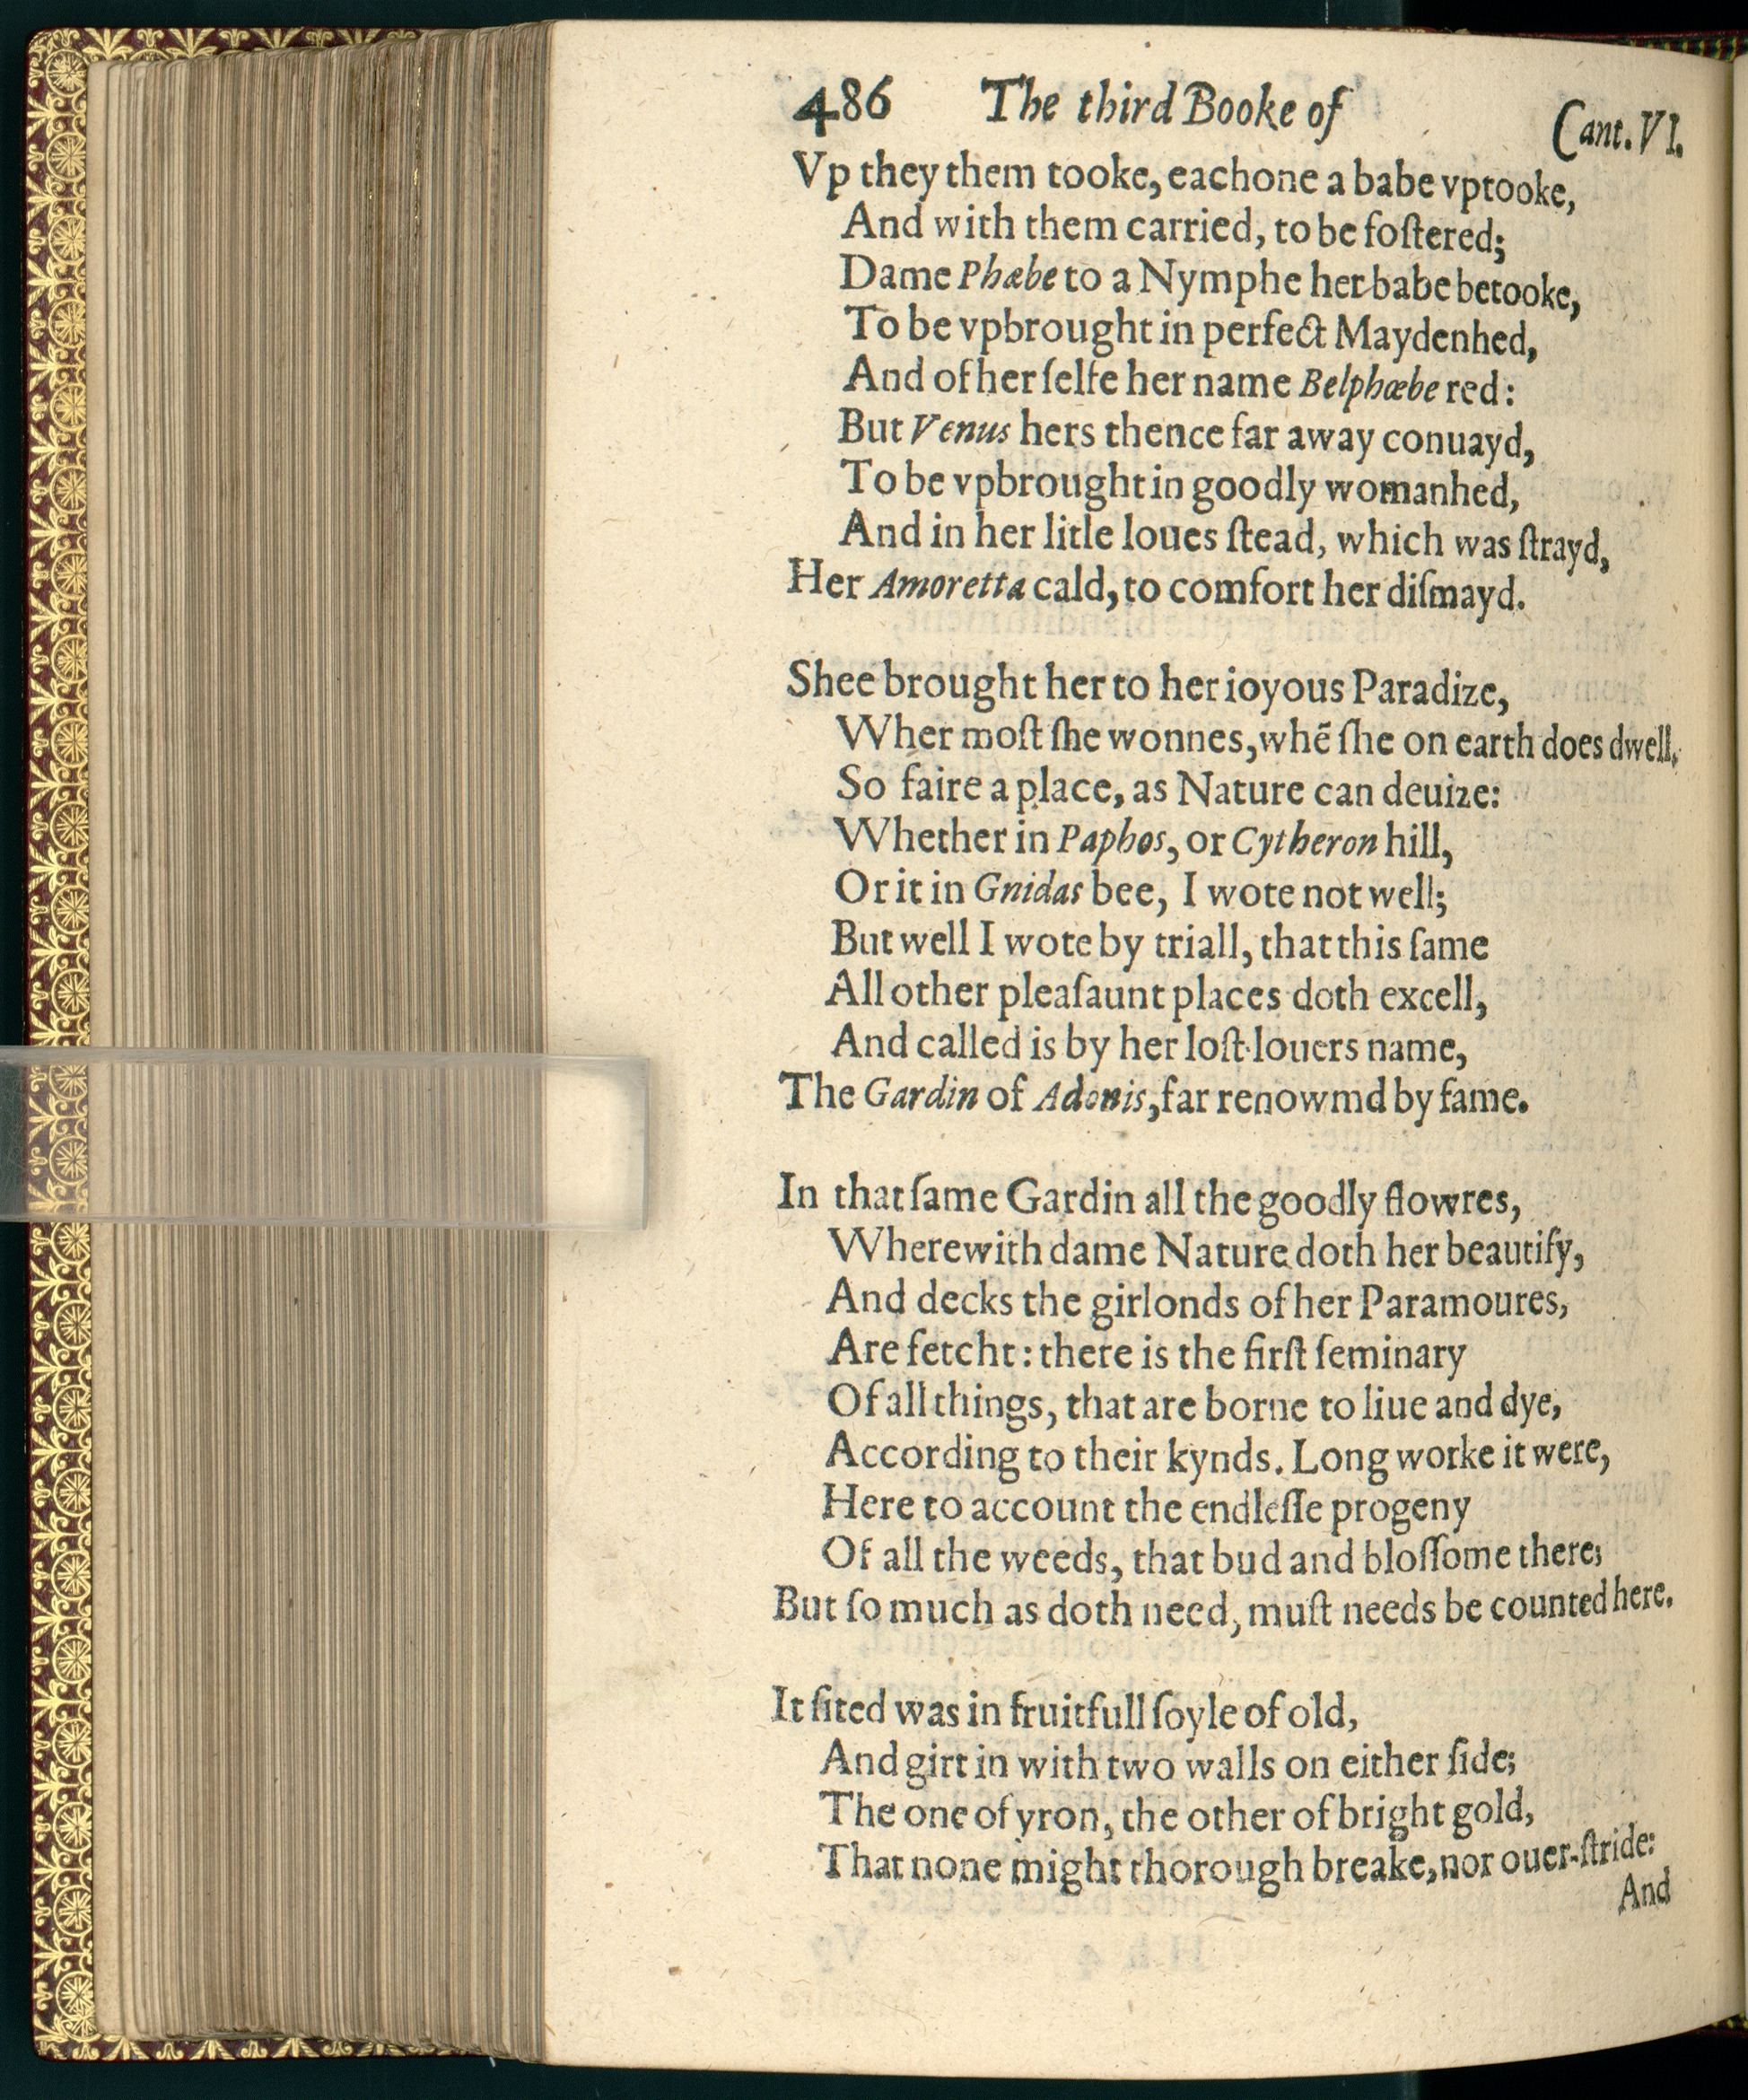 486 The third Booke of Cant.VI.
Vp they them tooke, eachone a babe vptooke,
And with them carried, to be foſtered;
Dame Phæbe to a Nymphe her babe betooke,
To be vpbrought in perfect Maydenhed,
And of her ſelfe her name Belphœbe red:
But Venus hers thence far away conuayd,
To be vpbrought in goodly womanhed,
And in her litle loues ſtead, which was ſtrayd,
Her Amoretta cald, to comfort her diſmayd.
Shee brought her to her ioyous Paradize,
Wher moſt ſhe wonnes, whē ſhe on earth does dwell.
So faire a place, as Nature can deuize:
Whether in Paphos, or Cytheron hill,
Or it in Gnidas bee, I wote not well;
But well I wote by triall, that this ſame
All other pleaſaunt places doth excell,
And called is by her loſt louers name,
The Gardin of Adonis, far renowmd by fame.
In that ſame Gardin all the goodly flowres,
Wherewith dame Nature doth her beautify,
And decks the girlonds of her Paramoures,
Are fetcht: there is the firſt ſeminary
Of all things, that are borne to liue and dye,
According to their kynds. Long worke it were,
Here to account the endleſſe progeny
Of all the weeds, that bud and bloſſome there;
But ſo much as doth need, muſt needs be counted here.
It ſited was in fruitfull ſoyle of old,
And girt in with two walls on either ſide;
The one of yron, the other of bright gold,
That none might thorough breake, nor ouer-ſtride:
And